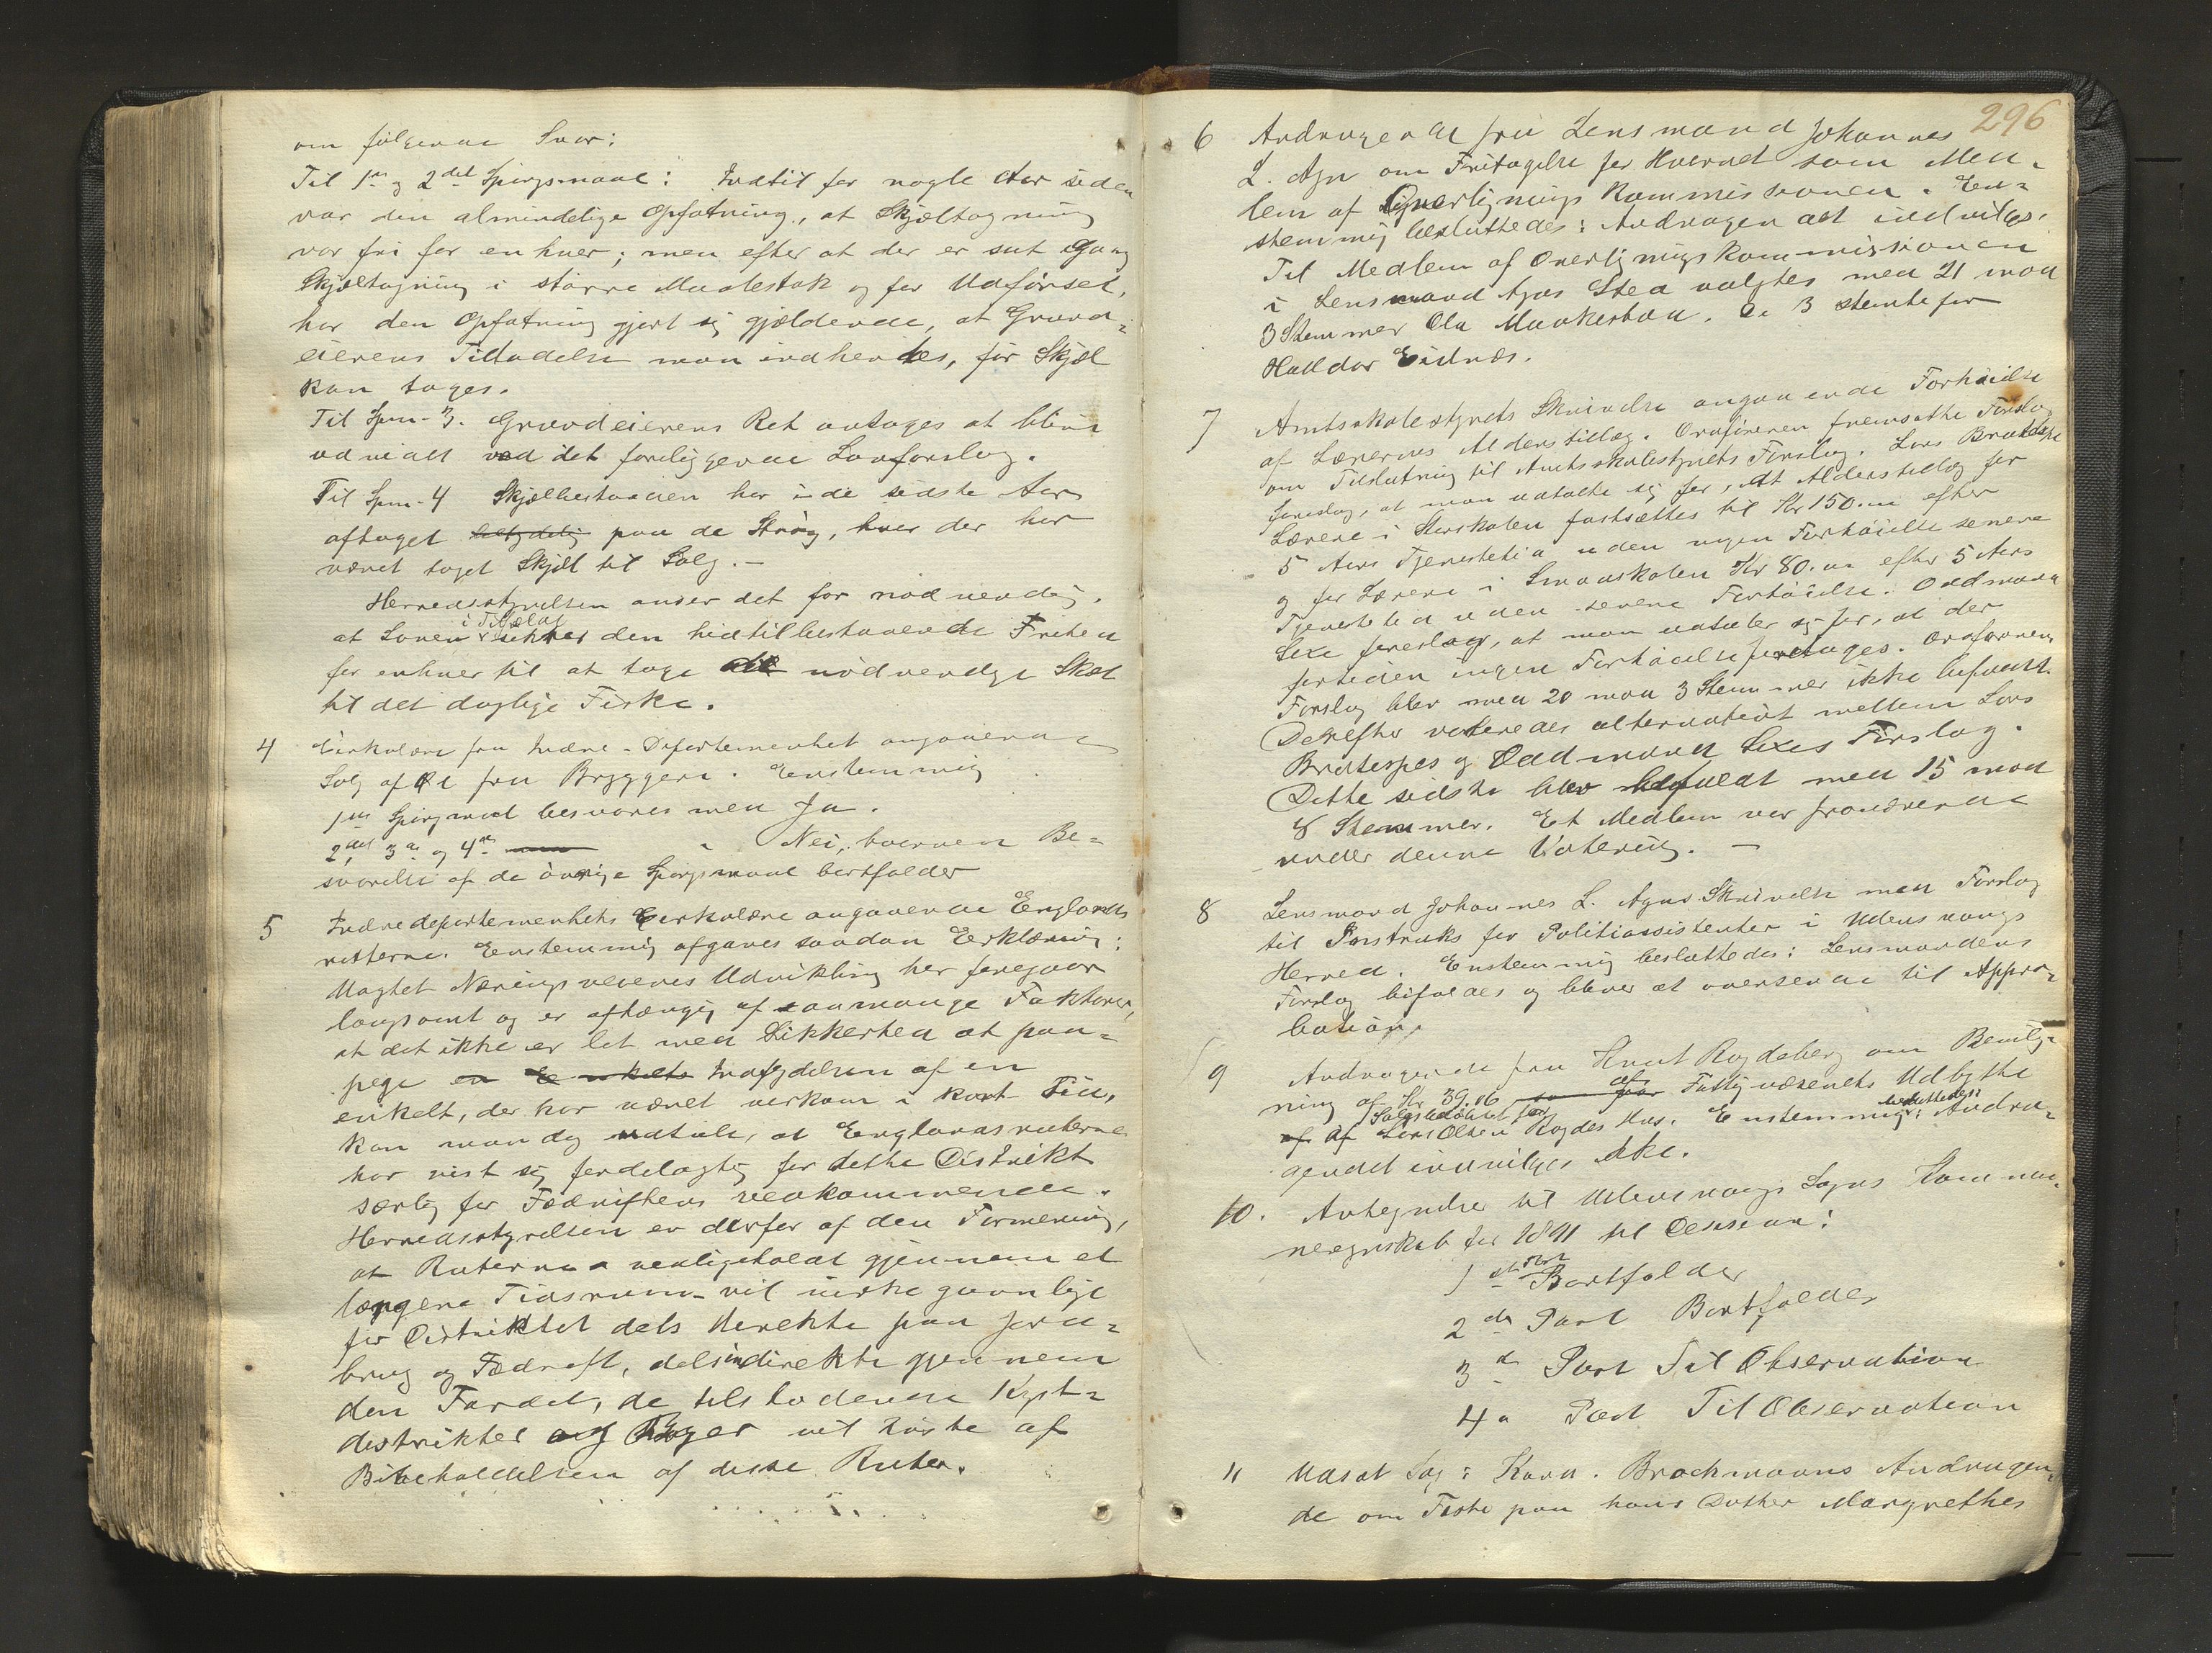 om følgende Svar:
Til 1ste og 2det Spørgsmaal: Indtil for nogle Aar siden
var den almindelige Opfatning, at Skjæltagning
var fri for enhver; men efter at der er sat igang
Skjæltagning i større Maalestok og for Udførsel,
har den Opfatning gjort sig gjældende, at Grund-
eierens Tilladelse maa indhentes, før Skjæl
kan tages.
Til Spm. 3. Grundeierens Ret antages at blive
udvidet ved det foreliggende Lovforslag.
Til Spm. 4 Skjælbestanden har i de sidste Aar
aftaget betydelig paa de Strøg, hvor der har
været taget Skjæl til Salg. —
Herredsstyrelsen anser det for nødvendig,
at Loven i Tilfælde sikrer den hidtil bestaaende Frihed
for enhver til at tage det nødvendige Skæl
til det daglige Fiske.
4 Cirkulære fra Indre-Departementet angaaende
Salg af Øl fra Bryggeri. Enstemmig
1ste Spørgsmaal besvares med Ja.
2det, 3die og 4de " Nei, hvorved Be-
svarelse af de øvrige Spørgsmaal bortfalder
5 Indredepartementets Cirkulære angaaende Englands
ruterne. Enstemmig afgaves saadan Erklæring:
Uagtet Næringsveienes Udvikling her foregaar
langsomt og er afhængig af saamange Faktorer,
at det ikke er let med Sikkerhed at paa-
pege en Enkelts Indflydelsen af en
enkelt, der har været virksom i kort Tid,
kan man dog udtale, at Englandsruterne
har vist sig fordelagtig for dette Distrikt
særlig for Fædriftens vedkommende.
Herredsstyrelsen er derfor af den Formening,
at Ruterne vedligeholdt gjennem et
længere Tidsrum vil virke gavnlige
for Distriktet dels direkte paa Jord-
brug og Fædrift, dels indirekte gjennem
den Fordel, de tilstødende Kyst-
distrikter og Byer vil høste af
Bibeholdelsen af disse Ruter.
296
6 Andragende fra Lensmand Johannes
L. Agn om Fritagelse for Hvervet som Med-
lem af Overligningskommissionen. En-
stemmig besluttedes: Andragendet indvilges.
Til Medlem af Overligningskommissionen
i Lensmand Agns Sted valgtes med 21 mod
3 Stemmer Ola Munkesbøen. De 3 stemte for
Halldor Eidnæs.
7 Amtsskolestyrets Skrivelse angaaende Forhøielse
af Lærernes Alderstillæg. Ordføreren fremsatte Forslag
om Tilslutning til Amtsskolestyrets Forslag. Lars Brudespe
foreslog, at man udtalte sig for, at Alderstillæg for
Lærere i Storskolen fastsættes til Kr 150.00 efter
5 Aars Tjenestetid uden nogen Forhøielse senere
og for Lærere i Smaaskolen Kr 80.00 efter 5 Aars
Tjenestetid uden senere Forhøielse. Oddmund
Sexe foreslog, at man udtaler sig for, at der
fortiden ingen Forhøielse foretages. Ordførerens
Forslag blev med 20 mod 3 Stemmer ikke bifaldt.
Derefter voteredes alternativt mellem Lars
Brutespes og Oddmund Sexes Forslag.
Dette sidste blev bifaldt med 15 mod
8 Stemmer. Et Medlem var fraværende
under denne Votering. —
8 Lensmand Johannes L. Agns Skrivelse med Forslag
til Instruks for Politiassistenter i Ullensvangs
Herred. Enstemmig besluttedes: Lensmandens
Forslag bifaldes og bliver at oversende til Appro-
bation.
9 Andragende fra Knut Rogdeberg om Bevilg-
ning af Kr 39.06 som for af Fattigvæsenets Udbytte
af af Salgsbeløbet for Lars Olsen Rogdes Hus. Enstemmig besluttedes: Andra-
gendet indvilges ikke.
10. Antegnelser til Ullensvangs Sogns Kommu-
neregnskab for 1891 til Decision:
1ste Post Bortfalder
2den Post Bortfalder
3die Post Til Observation
4de Post Til Observation
11 Udsat Sag: Kand. Brochmanns Andragen-
de om Feste paa hans Datter Margrethes